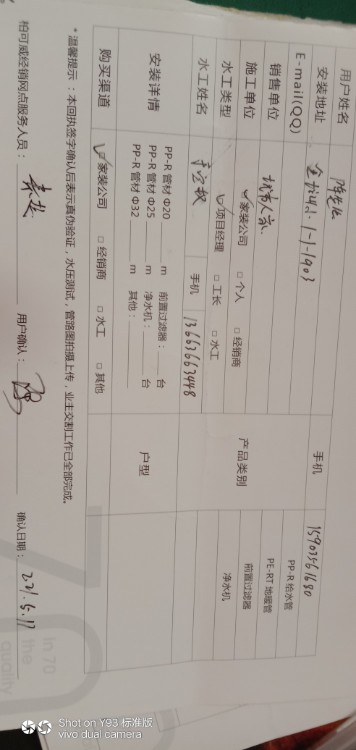 用户姓名 手机 15903561680
安装地址 1-1-1903
E-mail(QQ)
销售单位 产品类别 PP-R 给水管
PE-RT 地暖管
前置过滤器
净水机
施工单位 ✓家装公司 □ 个人 □ 经销商
水工类型 ✓项目经理 □ 工长 □ 水工
水工姓名 手机 13663663448
安装详情 PP-R 管材 Φ20 m 前置过滤器: 台 户型
PP-R 管材 Φ25 m 净水机: 台
PP-R 管材 Φ32 m 其他:
购买渠道 ✓家装公司 □ 经销商 □ 水工 □ 其他
*温馨提示:本回执签字确认后表示真伪验证,水压测试,管路图拍摄上传,业主交割工作已全部完成。
柏可威经销网点服务人员: 用户确认: 确认日期: 2021.5.17
In 70
the
quality
Shot on Y93 标准版
vivo dual camera